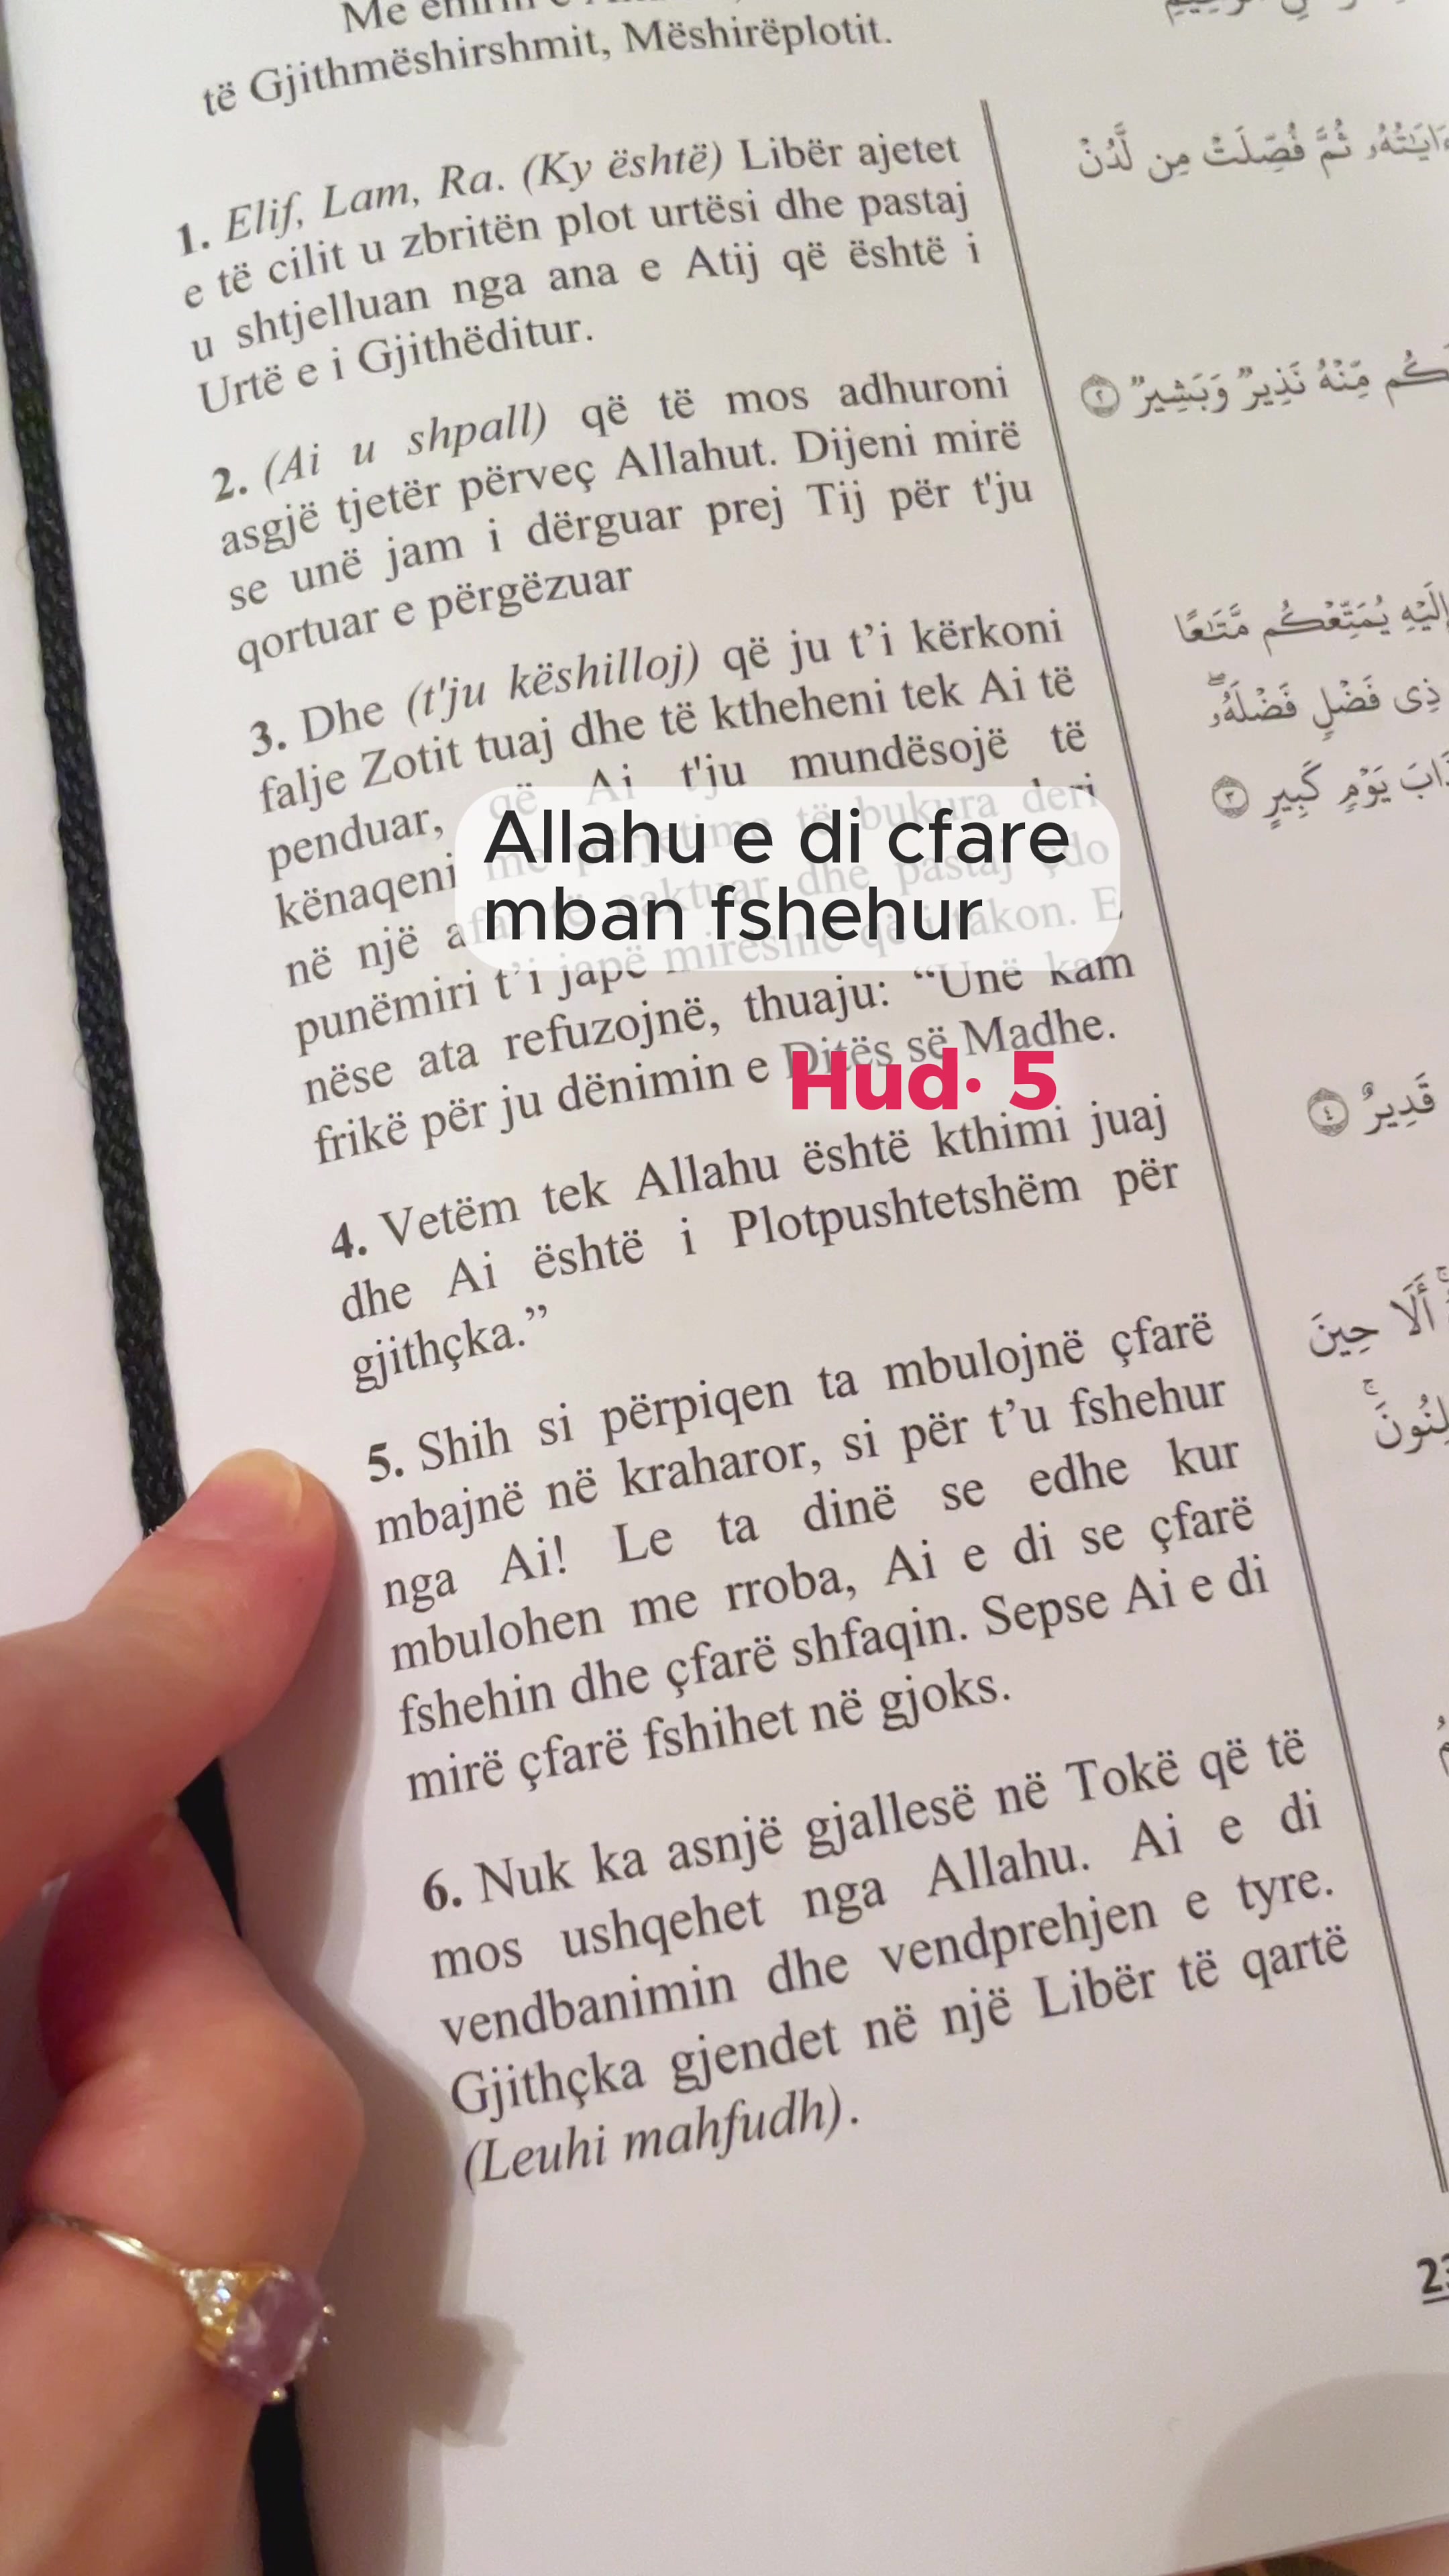 Me emrin e
të Gjithmëshirshmit, Mëshirëplotit.
1. Elif, Lam, Ra. (Ky është) Libër ajetet
e të cilit u zbritën plot urtësi dhe pastaj
u shtjelluan nga ana e Atij që është i
Urtë e i Gjithëditur.
2. (Ai u shpall) që të mos adhuroni
asgjë tjetër përveç Allahut. Dijeni mirë
se unë jam i dërguar prej Tij për t'ju
qortuar e përgëzuar
3. Dhe (t'ju këshilloj) që ju t’i kërkoni
falje Zotit tuaj dhe të ktheheni tek Ai të
penduar, që Ai t'ju mundësojë të
kënaqeni me përjetime të bukura deri
në një afat të caktuar dhe pastaj çdo
punëmiri t’i japë mirësinë që i takon. E
nëse ata refuzojnë, thuaju: “Unë kam
frikë për ju dënimin e Ditës së Madhe.
4. Vetëm tek Allahu është kthimi juaj
dhe Ai është i Plotpushtetshëm për
gjithçka.”
5. Shih si përpiqen ta mbulojnë çfarë
mbajnë në kraharor, si për t’u fshehur
nga Ai! Le ta dinë se edhe kur
mbulohen me rroba, Ai e di se çfarë
fshehin dhe çfarë shfaqin. Sepse Ai e di
mirë çfarë fshihet në gjoks.
6. Nuk ka asnjë gjallesë në Tokë që të
mos ushqehet nga Allahu. Ai e di
vendbanimin dhe vendprehjen e tyre.
Gjithçka gjendet në një Libër të qartë
(Leuhi mahfudh).
Allahu e di cfare
mban fshehur
Hud· 5
ثُمَّ فُصِّلَتْ مِن لَّدُنْ
مِّنْهُ نَذِيرٌ وَبَشِيرٌ ٢
إِلَيْهِ يُمَتِّعْكُم مَّتَٰعًا
ذِى فَضْلٍ فَضْلَهُۥ
يَوْمٍ كَبِيرٍ ٣
قَدِيرٌ ٤
أَلَا حِينَ